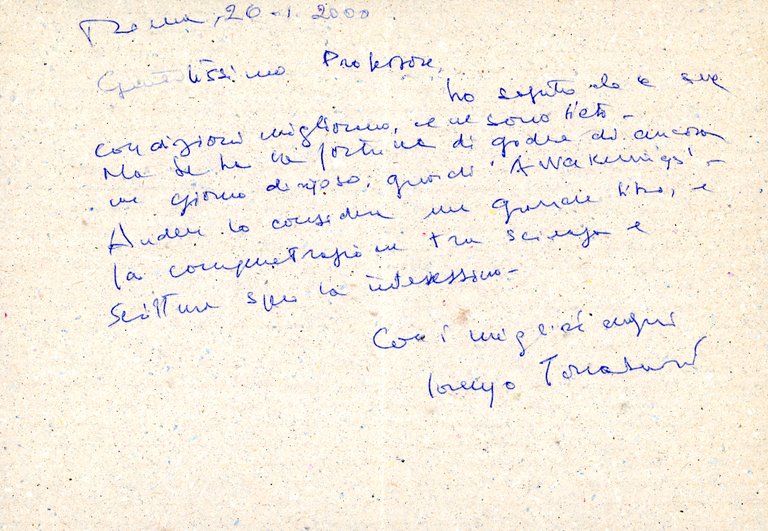 Roma, 20.1.2000
Gentilissimo Professore,
ho saputo che le sue
condizioni migliorano, e ne sono lieto -
Ma se ha la fortuna di godere di ancora
un giorno di riposo, guardi 'Awakenings' -
Auden lo considera un grande libro, e
la compenetrazione tra scienza e
scrittura spero la interessino -
Con i migliori auguri
Lorenzo